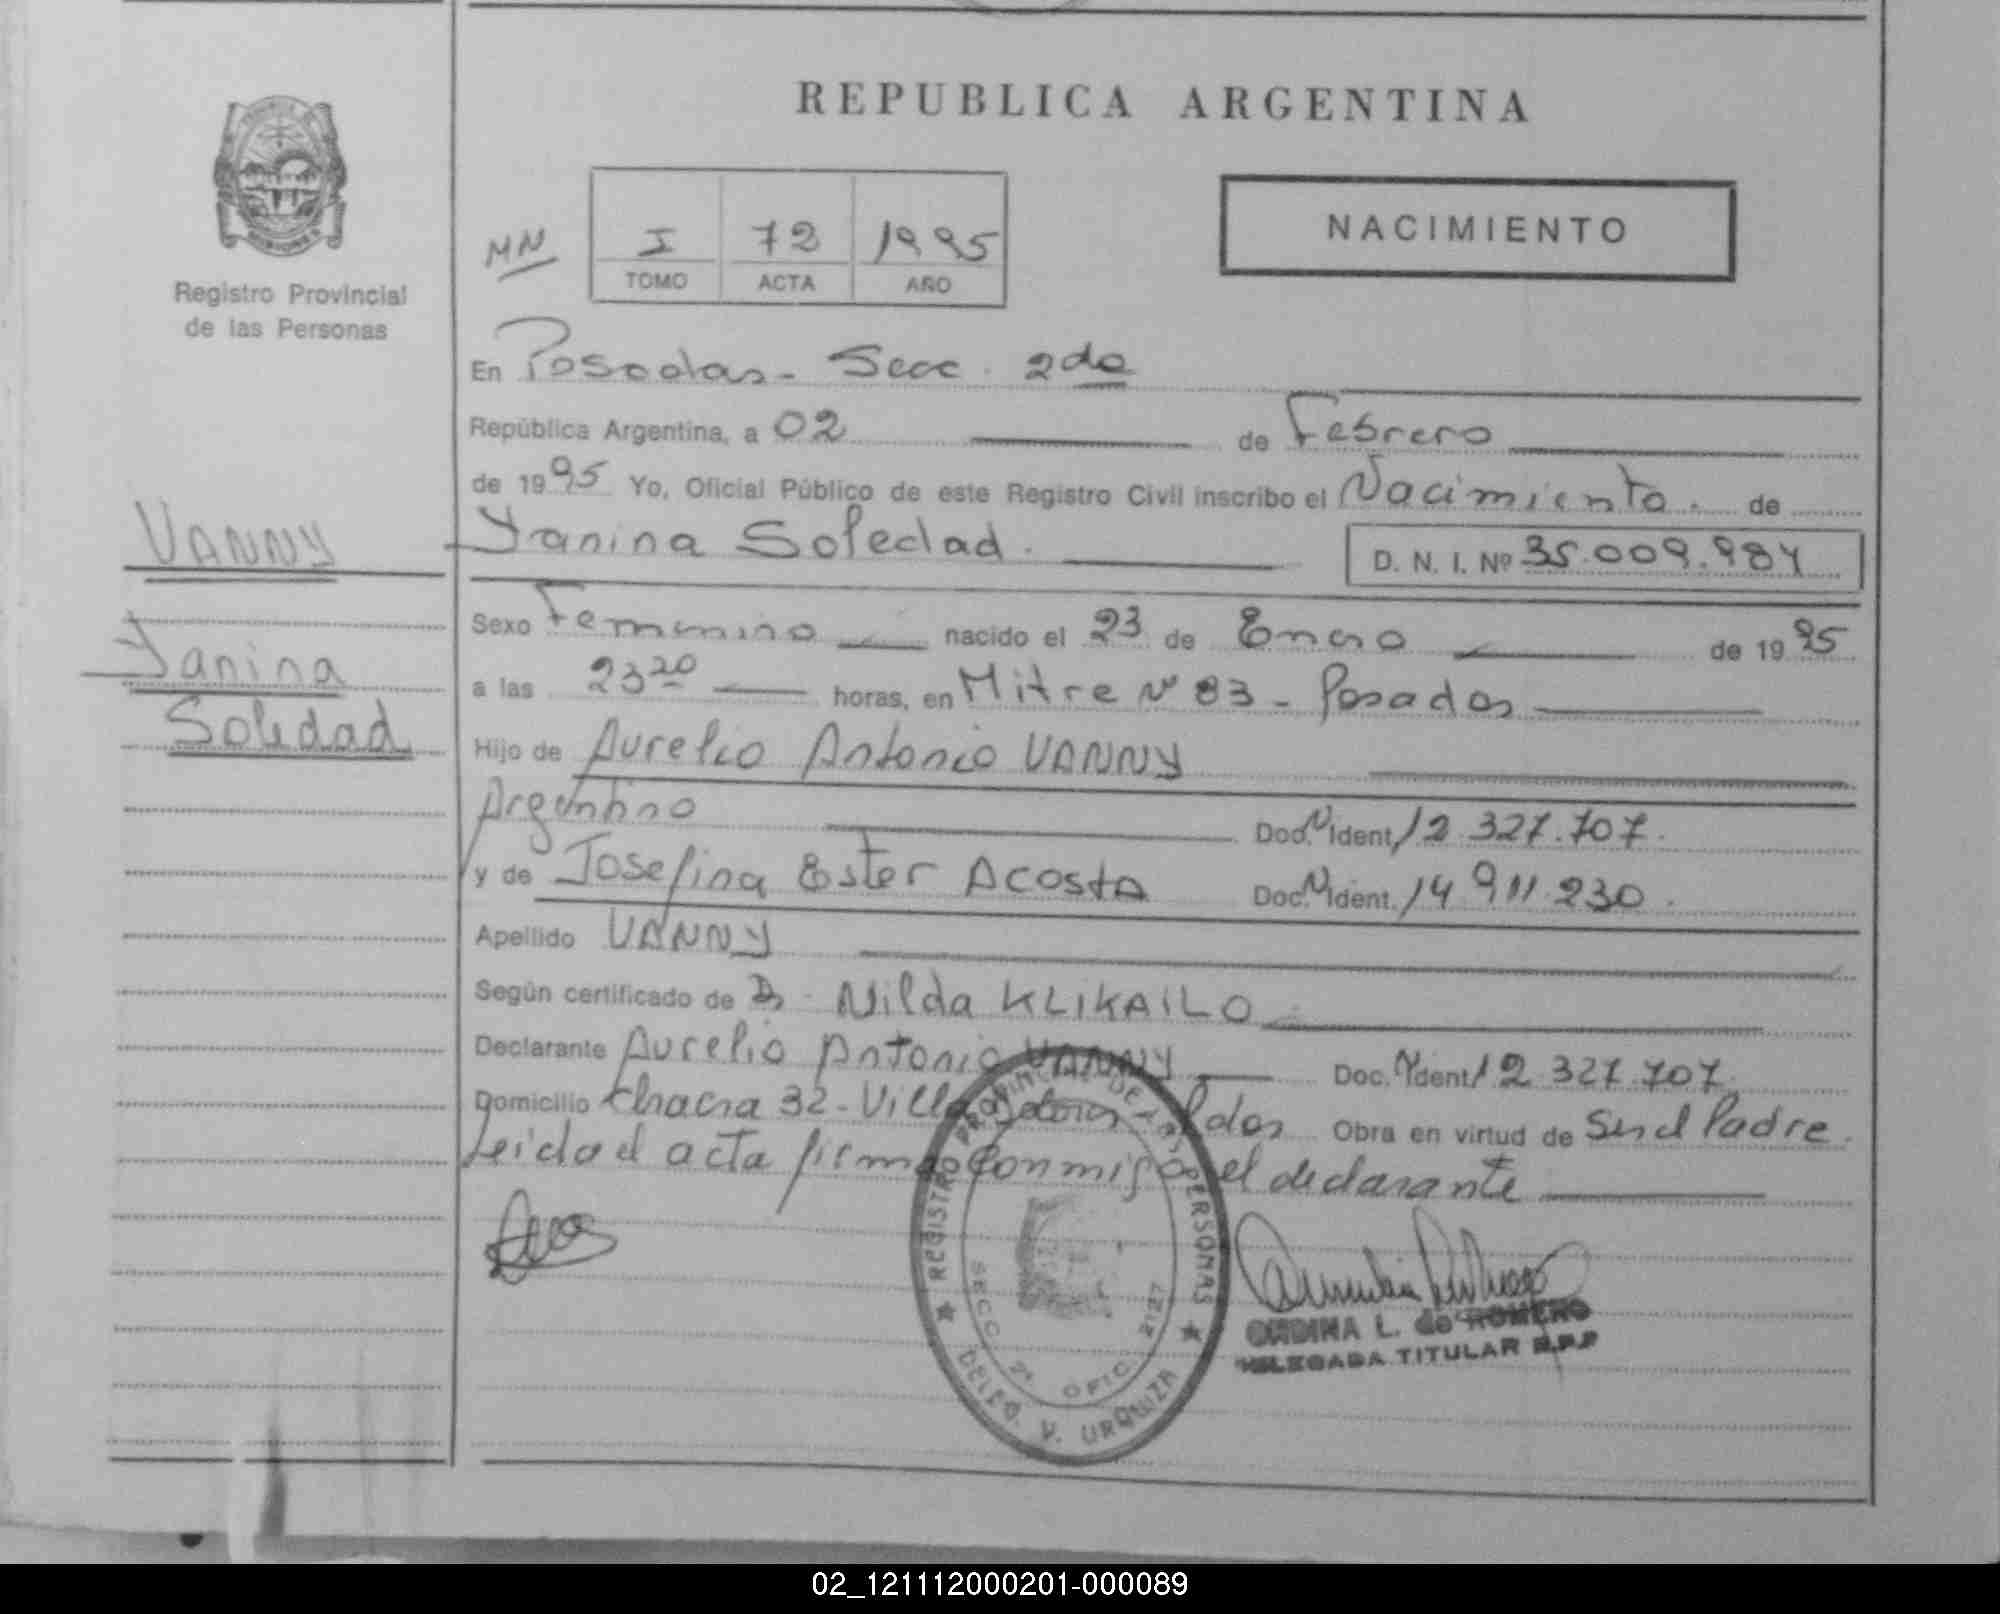 REPUBLICA ARGENTINA
Registro Provincial
de las Personas
MN
I 72 1995
TOMO ACTA AÑO
NACIMIENTO
VANNY
Yanina
Soledad
En Posadas - Secc. 2da
República Argentina, a 02 de Febrero
de 1995 Yo, Oficial Público de este Registro Civil inscribo el Nacimiento. de
Yanina Soledad. D. N. I. Nº 35.009.984
Sexo Femenino nacido el 23 de Enero de 1995
a las 23 20 horas, en Mitre Nº 83 - Posadas
Hijo de Aurelio Antonio VANNY
Argentino Doc. N Ident. 12.327.707.
y de Josefina Ester ACOSTA Doc. N Ident. 14.911.230.
Apellido VANNY
Según certificado de Nilda KLIKAILO
Declarante Aurelio Antonio VANNY Doc. N Ident. 12.327.707.
Domicilio Chacra 32 - Villa Pdas Obra en virtud de Ser el Padre.
Leida el acta firmado conmigo el declarante
REGISTRO PROVINCIAL DE LAS PERSONAS
SECC. 2ª OFIC. 2127
DELEG. V. URQUIZA
L. de ROMERO
DELEGADA TITULAR R.P.P
02_121112000201-000089